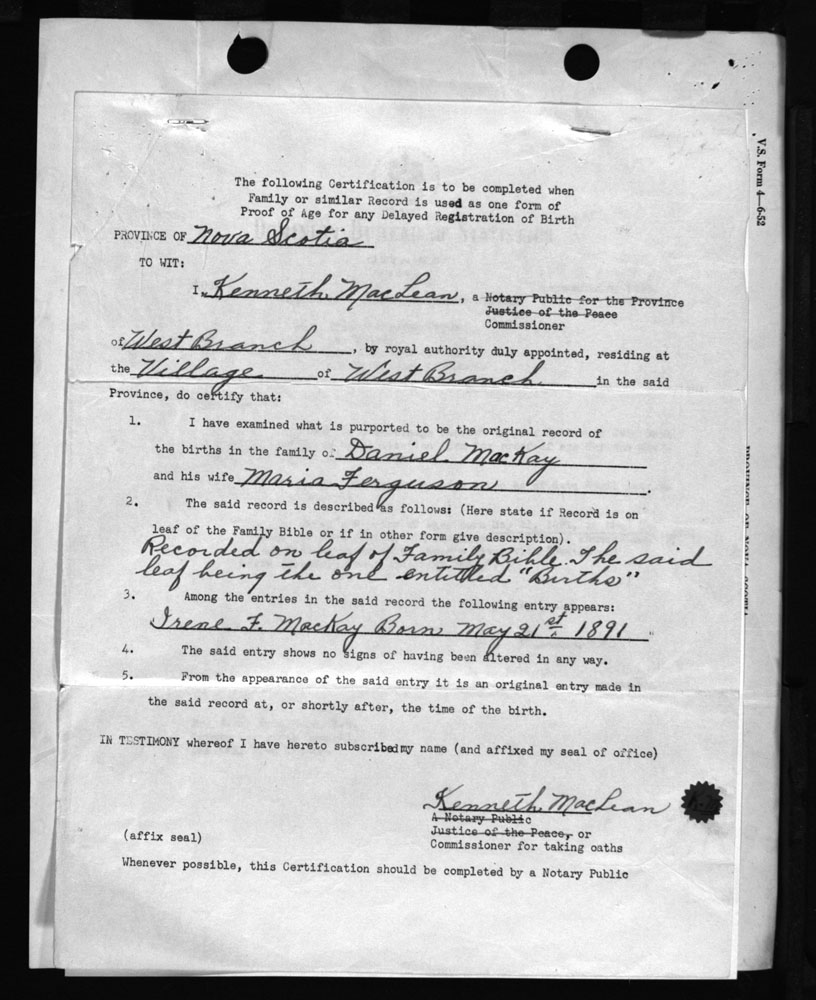 V.S. Form 4—6-52
The following Certification is to be completed when
Family or similar Record is used as one form of
Proof of Age for any Delayed Registration of Birth
PROVINCE OF Nova Scotia
TO WIT:
I, Kenneth MacLean, a Notary Public for the Province
Justice of the Peace
Commissioner
of West Branch, by royal authority duly appointed, residing at
the Village of West Branch in the said
Province, do certify that:
1. I have examined what is purported to be the original record of
the births in the family of Daniel MacKay
and his wife Maria Ferguson.
2. The said record is described as follows: (Here state if Record is on
leaf of the Family Bible or if in other form give description).
Recorded on leaf of Family Bible. The said
leaf being the one entitled "Births"
3. Among the entries in the said record the following entry appears:
Irene F. MacKay Born May 21st. 1891"
4. The said entry shows no signs of having been altered in any way.
5. From the appearance of the said entry it is an original entry made in
the said record at, or shortly after, the time of the birth.
IN TESTIMONY whereof I have hereto subscribed my name (and affixed my seal of office)
Kenneth MacLean
A Notary Public
Justice of the Peace, or
(affix seal) Commissioner for taking oaths
Whenever possible, this Certification should be completed by a Notary Public